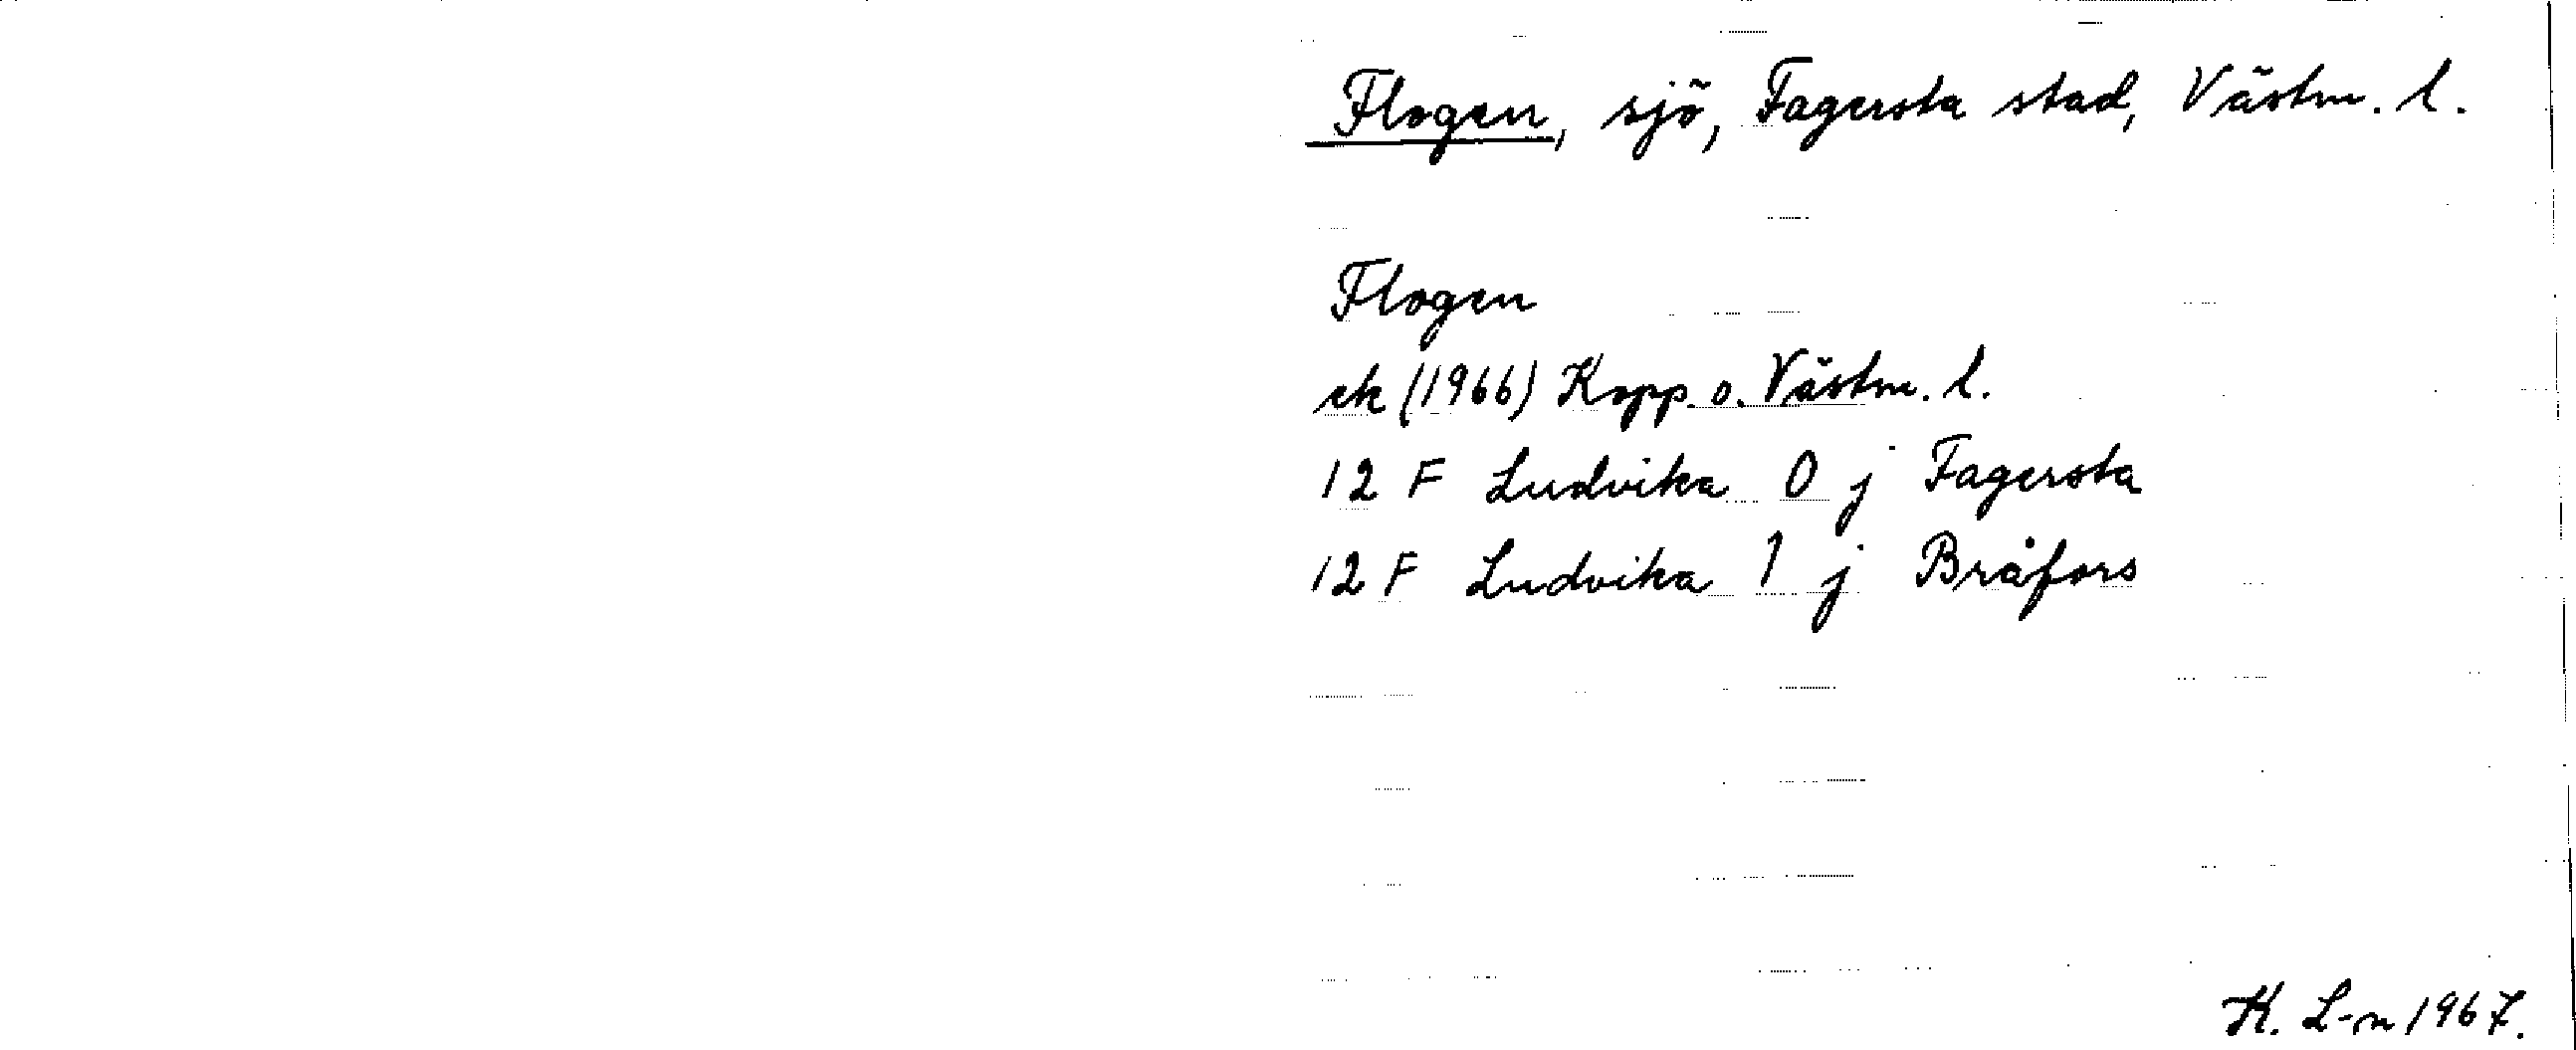 Flogen, sjö, Fagersta stad, Västm. l.
Flogen
ek (1966) Kopp. o. Västm. l.
12 F Ludvika 0 j Fagersta
12 F Ludvika 1 j Bråfors
K. L-n 1967.